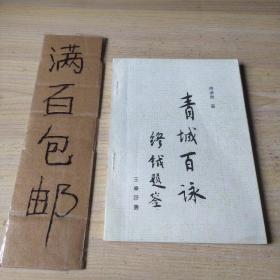 满百包邮
青城百咏
缪钺题签